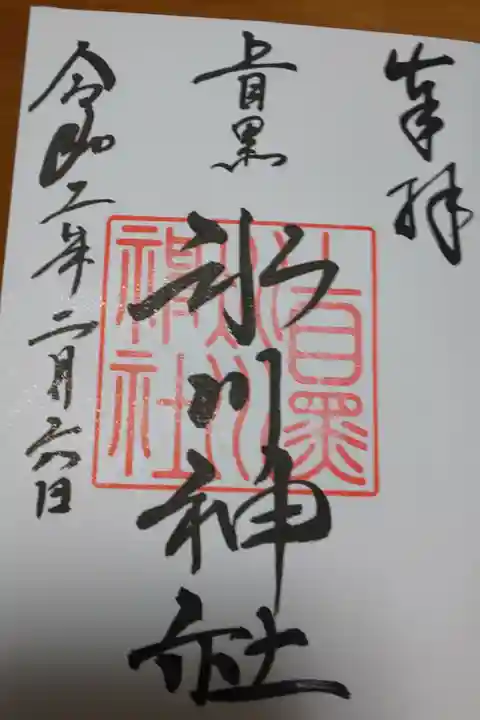 奉拝
上目黒
氷川神社
令和二年二月六日
上目黒
氷川
神社